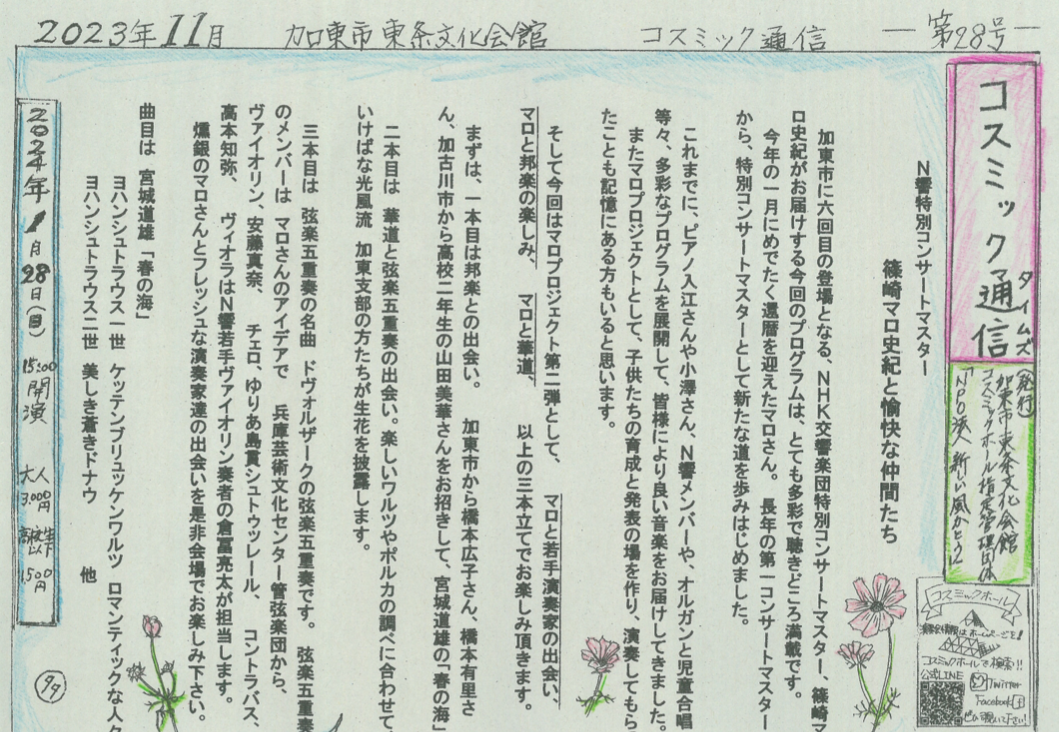 2023年11月 加東市東条文化会館 コスミック通信 ―第98号―
コスミック通信
タイムズ
(発行)
加東市東条文化会館
コスミックホール指定管理団体
「NPO法人 新しい風かとう」
N響特別コンサートマスター
篠崎マロ史紀と愉快な仲間たち
加東市に六回目の登場となる、NHK交響楽団特別コンサートマスター、篠崎マ
ロ史紀がお届けする今回のプログラムは、とても多彩で聴きどころ満載です。
今年の一月にめでたく還暦を迎えたマロさん。長年の第一コンサートマスター
から、特別コンサートマスターとして新たな道を歩みはじめました。
これまでに、ピアノ入江さんや小澤さん、N響メンバーや、オルガンと児童合唱
等々、多彩なプログラムを展開して、皆様により良い音楽をお届けしてきました。
またマロプロジェクトとして、子供たちの育成と発表の場を作り、演奏してもら
たことも記憶にある方もいると思います。
そして今回はマロプロジェクト第二弾として、 マロと若手演奏家の出会い、
マロと邦楽の楽しみ、 マロと華道、 以上の三本立てでお楽しみ頂きます。
まずは、一本目は邦楽との出会い。 加東市から橋本広子さん、橋本有里さ
ん、加古川市から高校二年生の山田美華さんをお招きして、宮城道雄の「春の海」
二本目は 華道と弦楽五重奏の出会い。楽しいワルツやポルカの調べに合わせて
いけばな光風流 加東支部の方たちが生花を披露します。
三本目は 弦楽五重奏の名曲 ドヴォルザークの弦楽五重奏です。 弦楽五重奏
のメンバーは マロさんのアイデアで 兵庫芸術文化センター管弦楽団から、
ヴァイオリン、安藤真奈、 チェロ、ゆりあ島貫シュトゥッレール、 コントラバス、
高本知弥、 ヴィオラはN響若手ヴァイオリン奏者の倉冨亮太が担当します。
燻銀のマロさんとフレッシュな演奏家達の出会いを是非会場でお楽しみ下さい。
曲目は 宮城道雄「春の海」
ヨハンシュトラウス一世 ケッテンブリュッケンワルツ ロマンティックな人々
ヨハンシュトラウス二世 美しき蒼きドナウ 他
2024年1月28日(日) 15:00開演 大人3,000円 高校生以下1,500円
コスミックホール
コスミックホールで検索!!
公式LINE
Twitter
Facebook